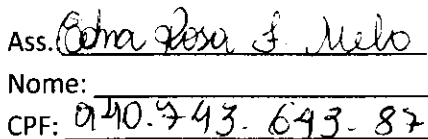 Ass. Edna Rosa F. Melo
Nome:
CPF: 940.743.643-87